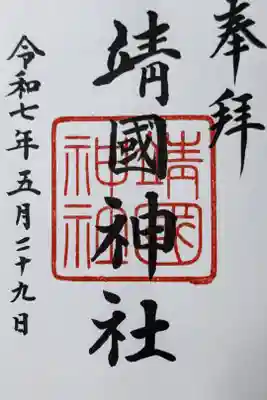 奉拝
靖國神社
靖国神社
令和七年五月二十九日